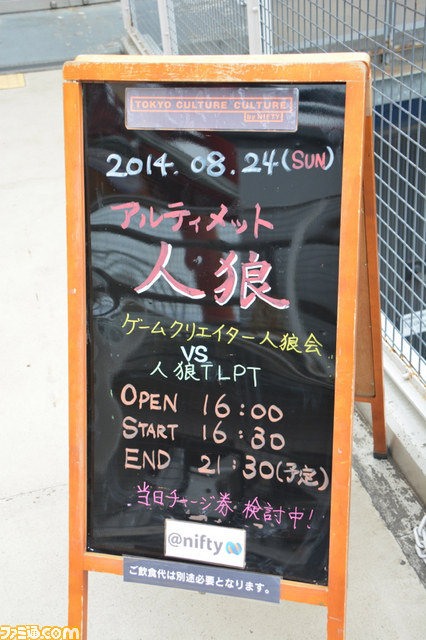 TOKYO CULTURE CULTURE
by NIFTY
2014.08.24(SUN)
アルティメット
人狼
ゲームクリエイター人狼会
VS
人狼TLPT
OPEN 16:00
START 16:30
END 21:30(予定)
当日チャージ券・検討中!
@nifty
ご飲食代は別途必要となります。
ファミ通.com